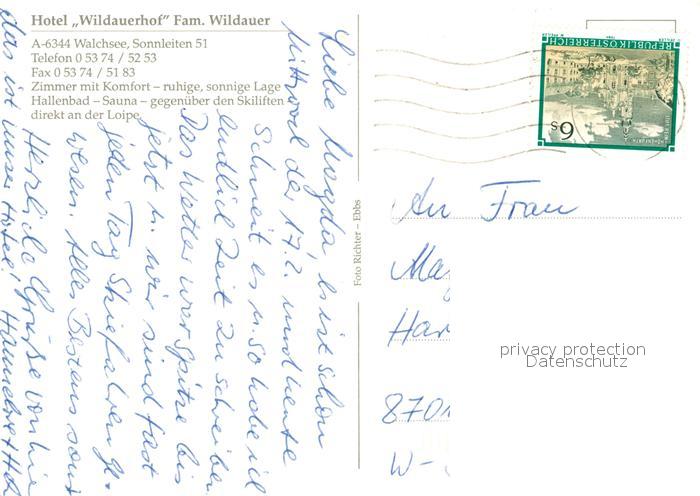 Hotel „Wildauerhof“ Fam. Wildauer
A-6344 Walchsee, Sonnleiten 51
Telefon 0 53 74 / 52 53
Fax 0 53 74 / 51 83
Zimmer mit Komfort – ruhige, sonnige Lage
Hallenbad – Sauna – gegenüber den Skiliften
direkt an der Loipe
Liebe Magda, es ist schon
Mittwoch der 17.2. und heute
schneit es u. so habe ich
endlich Zeit zu schreiben.
Das Wetter war Spitze bis
jetzt u. wir sind fast
jeden Tag Skifahren ge-
wesen. Alles Bestens sonst
Herzliche Grüße von hier
das ist unser Hotel! Hannelore +
Foto Richter – Ebbs
REPUBLIK ÖSTERREICH
6 S
An Frau
Ma
Har
8701
W-
privacy protection
Datenschutz